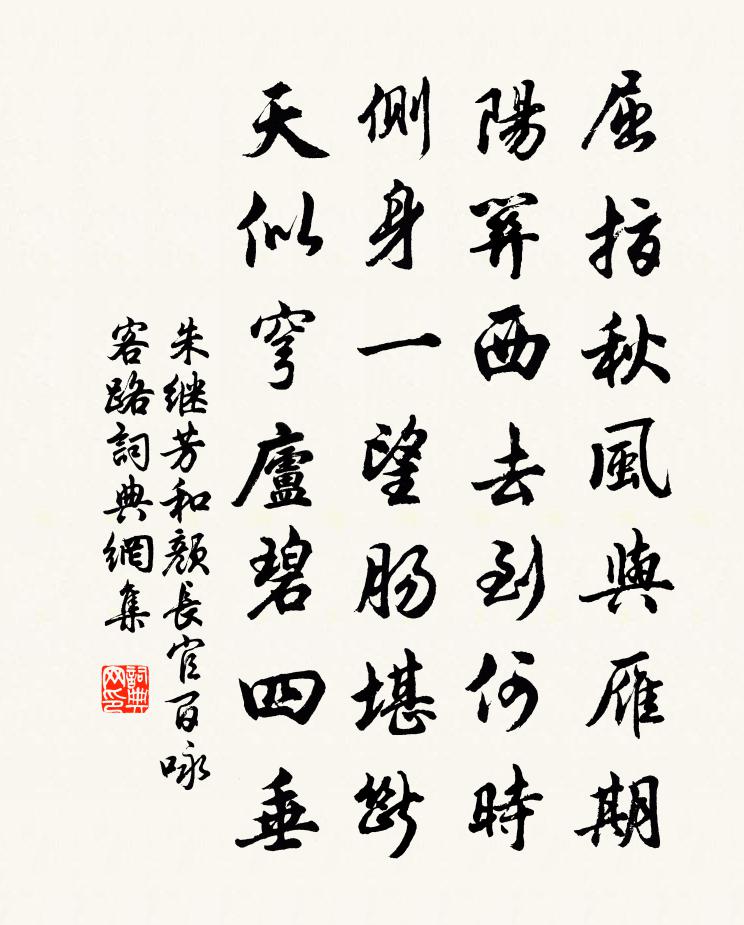 屈指秋風與雁期
陽關西去到何時
側身一望腸堪斷
天似穹廬碧四垂
朱继芳和顏長官百咏
客路詞典網集
詞典
网印